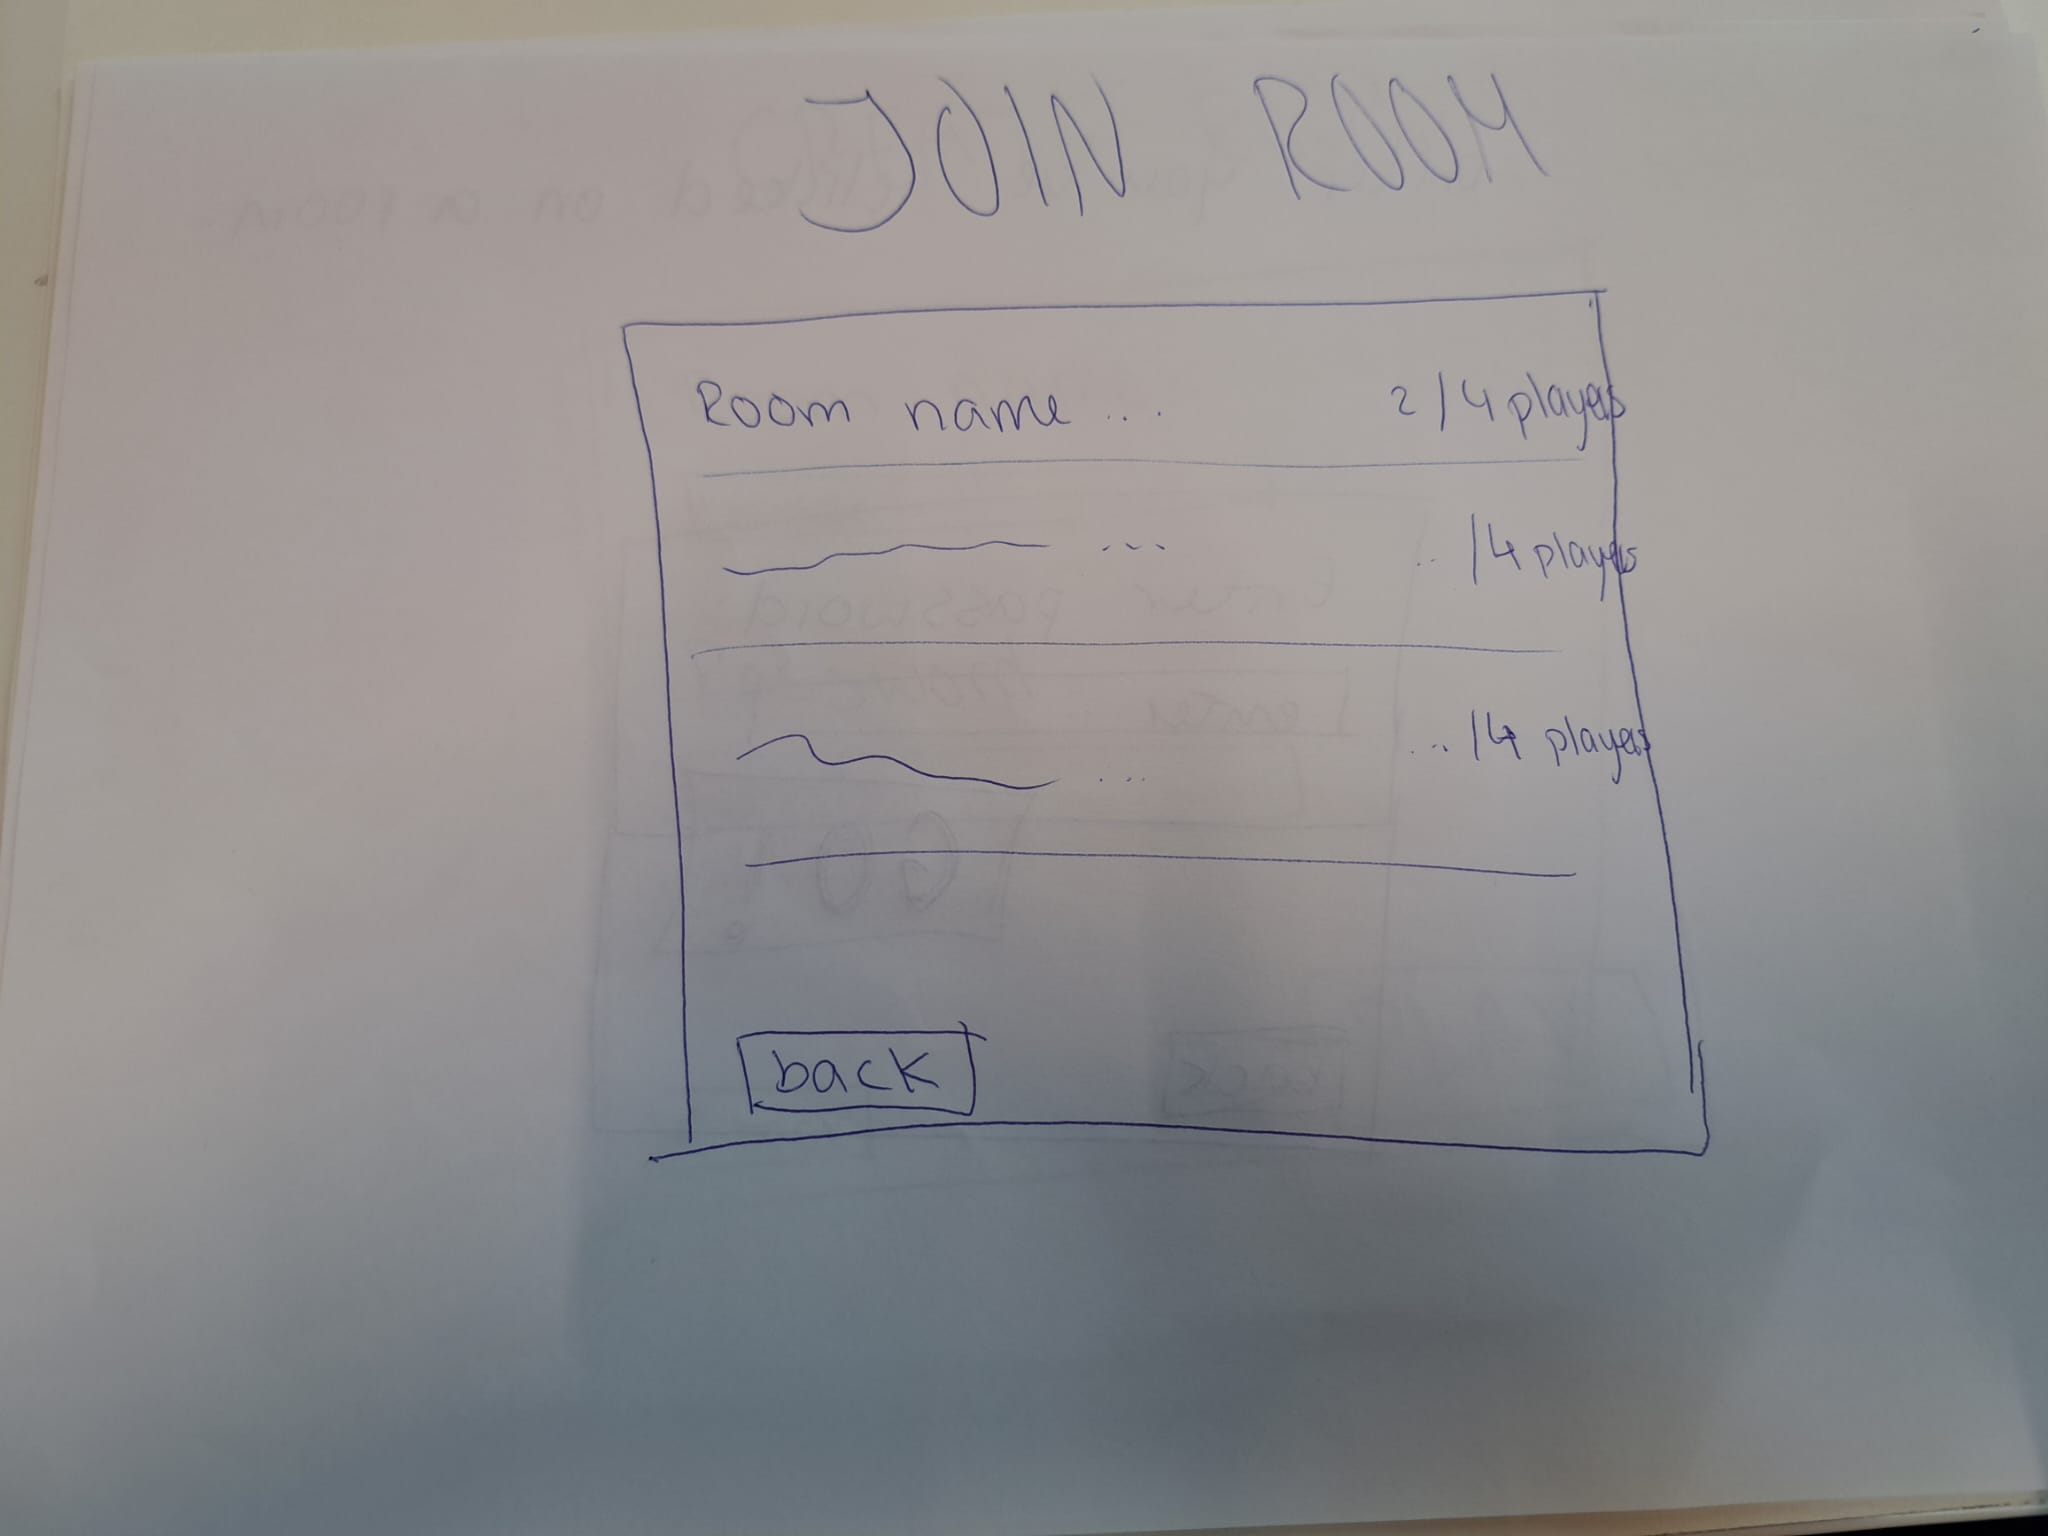 JOIN ROOM
Room name ... 2/4 players
... .. /4 players
... ... /4 players
back